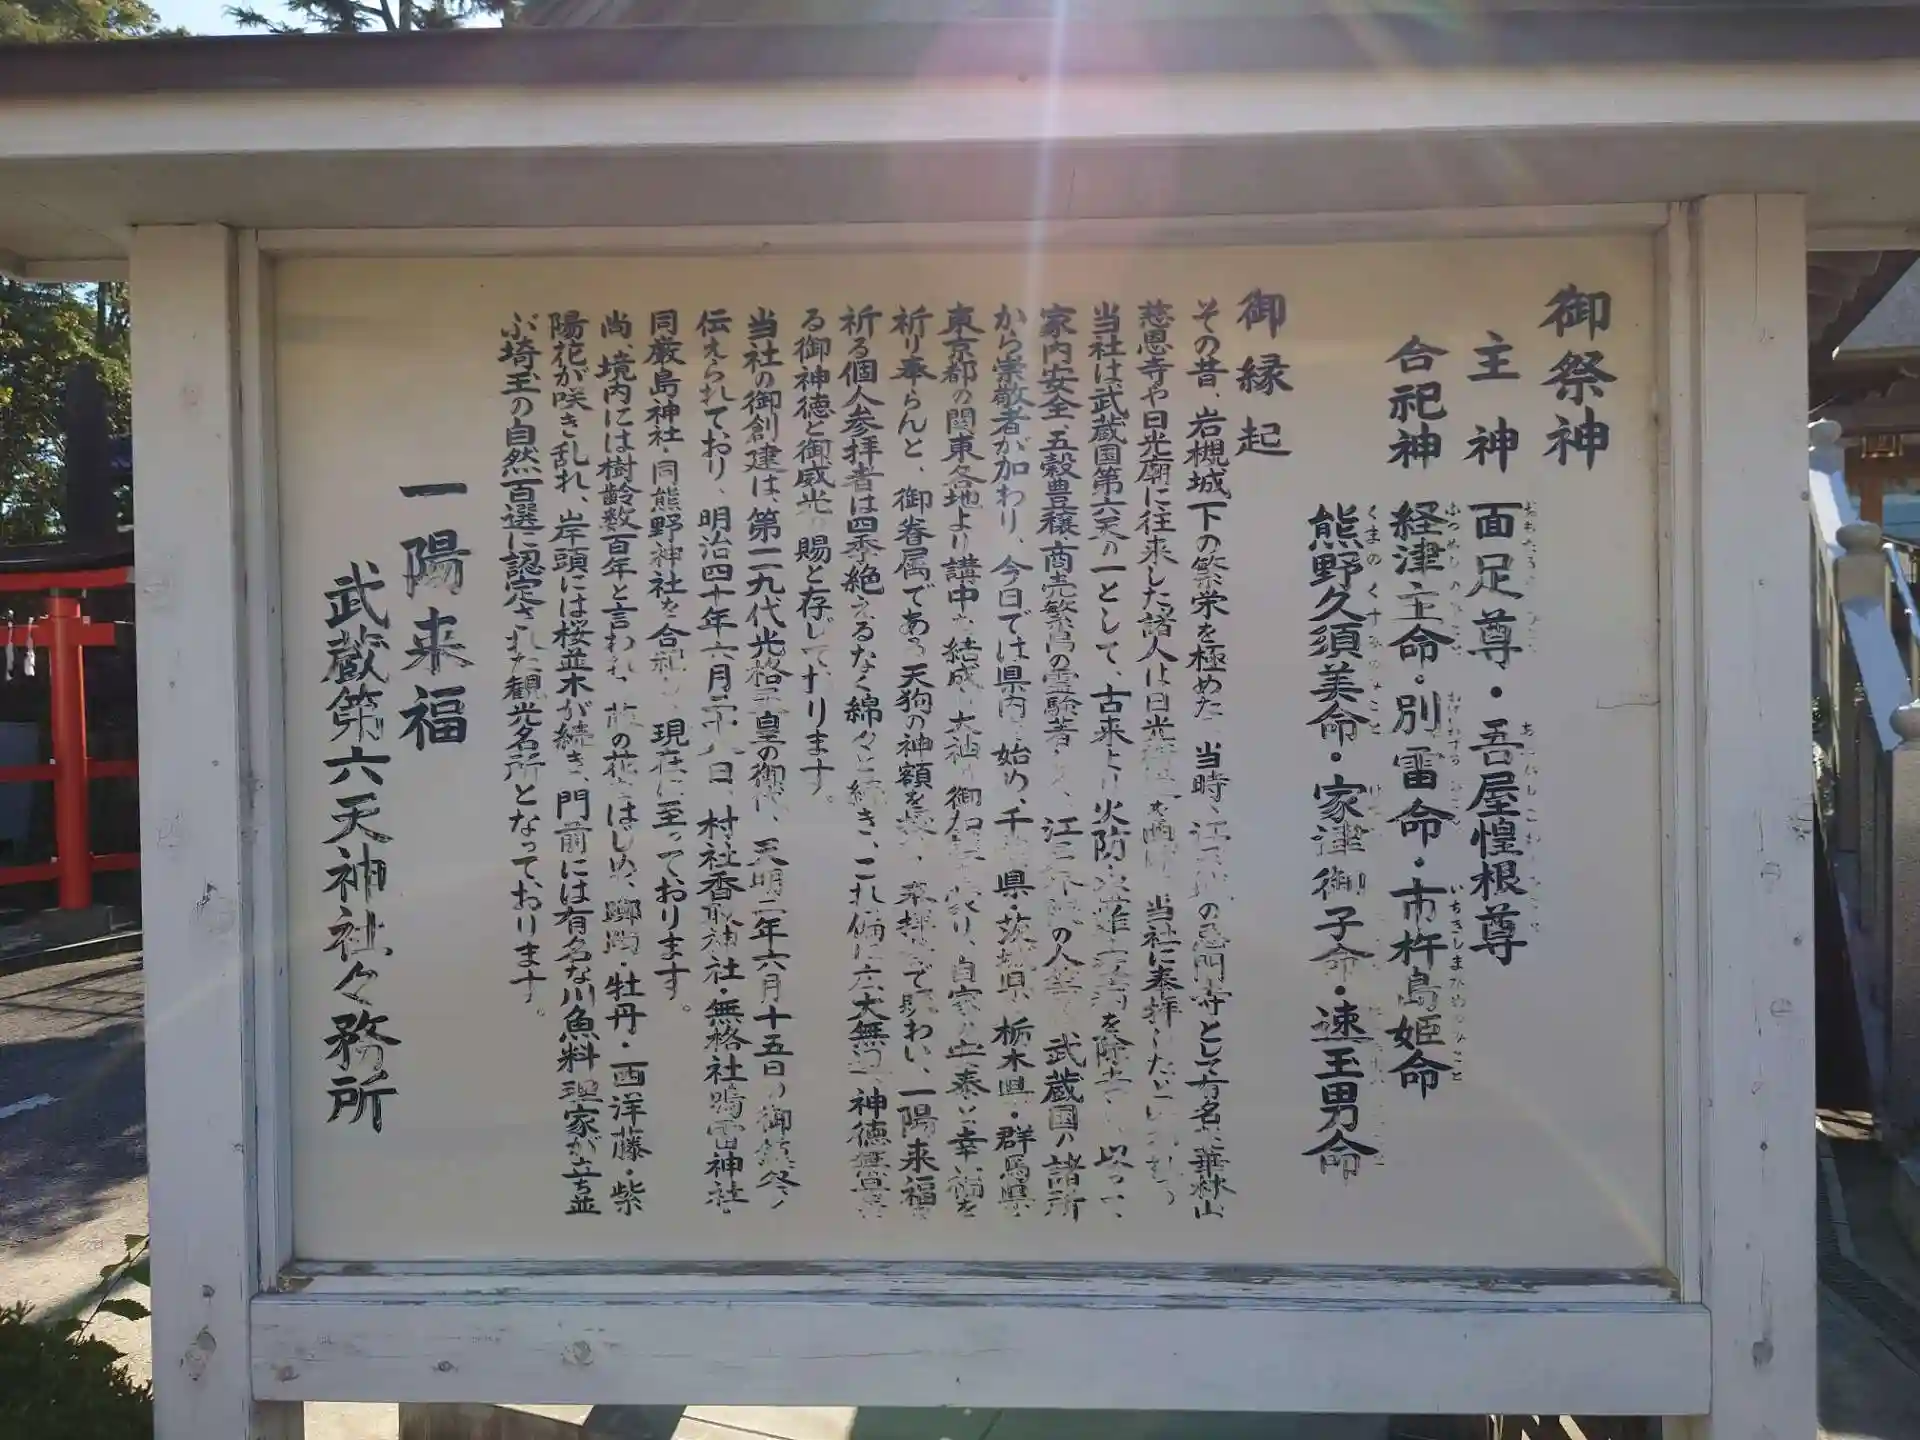 御祭神
主神 面足尊・吾屋惶根尊
合祀神 経津主命・別雷命・市杵島姫命
熊野久須美命・家津御子命・速玉男命
御縁起
その昔、岩槻城下の繁栄を極めた当時、江戸城の鬼門寺として有名な華林山
慈恩寺や日光廟に往来した諸人は日光街道を 当社に奉拝したと
当社は武蔵国第六天の一として、古来より火防・盗難 を除き 以って、
家内安全、五穀豊穣、商売繁昌の霊験著 、江戸 の人 武蔵国の諸所
から崇敬者が加わり、今日では県内 始め、千葉県・茨城県・栃木県・群馬県・
東京都の関東各地より講中 結成 大神 御加 り、自家の安泰と幸福を
祈り奉らんと、御眷属である天狗の神額を 、 で賑わい、一陽来福
祈る個人参拝者は四季絶えるなく綿々と続き、これ偏に広大無辺、神徳無
る御神徳と御威光の賜と存じております。
当社の御創建は、第一一九代光格天皇の御代、天明二年六月十五日の御鎮祭
伝えられており、明治四十年六月二十八日、村社香取神社・無格社 雷神社・
同厳島神社・同熊野神社を合祀 、現在に至っております。
尚、境内には樹齢数百年と言われ 藤の花をはじめ、躑躅・牡丹・西洋藤・紫
陽花が咲き乱れ、岸頭には桜並木が続き、門前には有名な川魚料理家が立ち並
ぶ埼玉の自然百選に認定された観光名所となっております。
一陽来福
武蔵第六天神社々務所